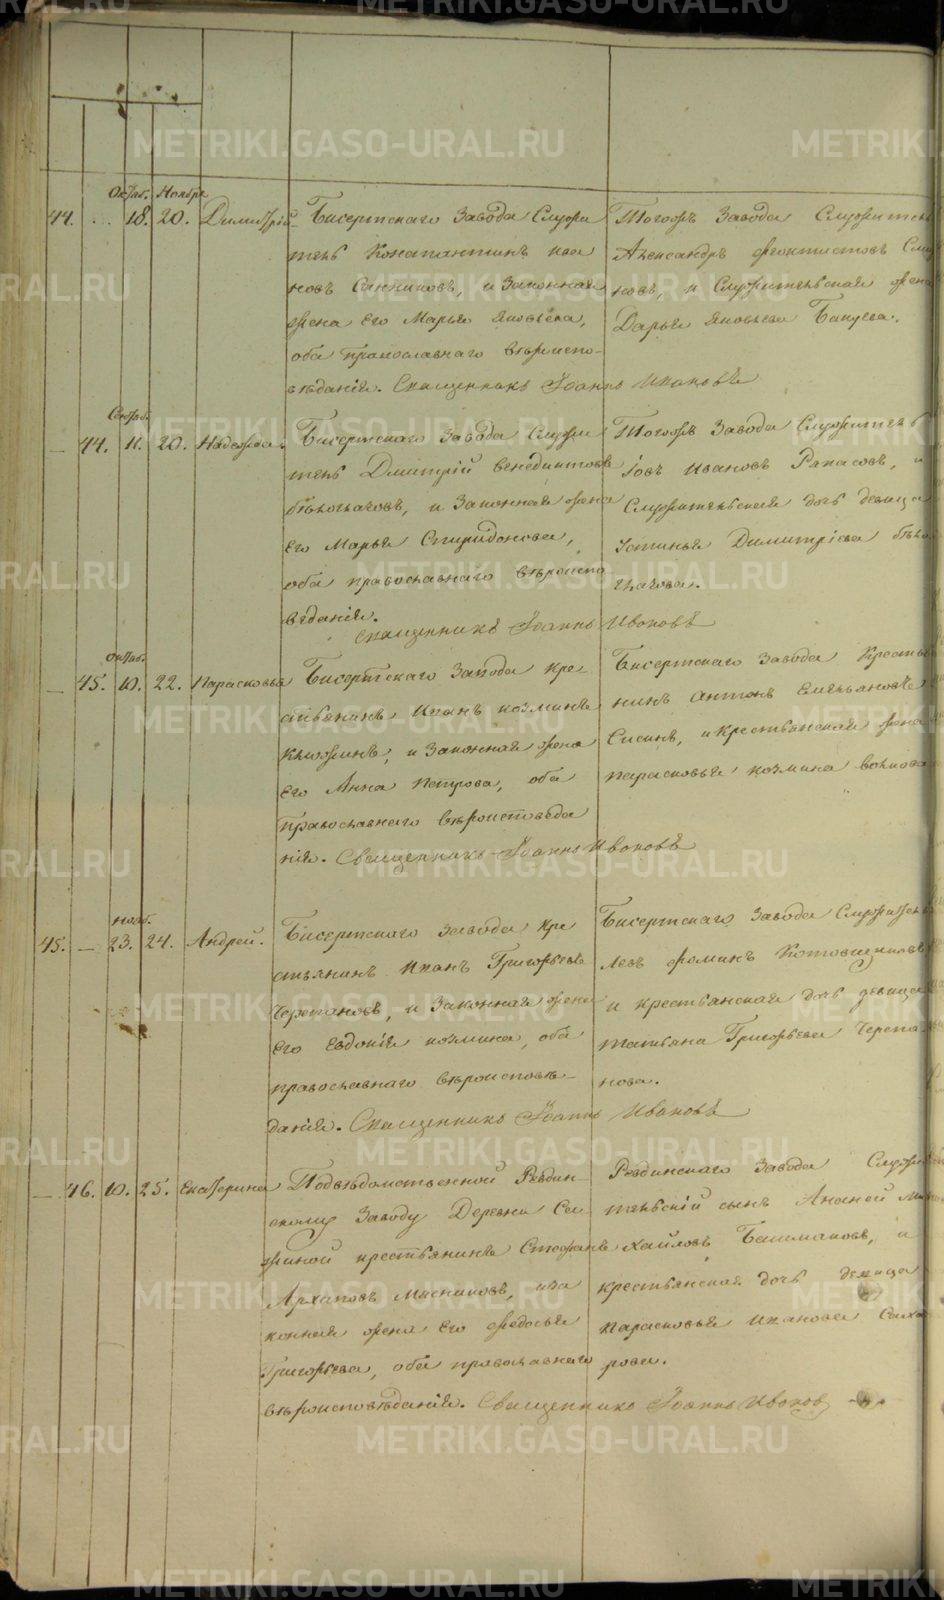 Октяб. Ноября
44. 18. 20. Димитрій.
Бисертскаго Завода Служи
тель Константинъ Ива
новъ Санниковъ, и Законная
жена Его Марья Яковлева,
оба православнаго вѣроиспо-
вѣданія. Священникъ Іоаннъ Ивановъ
Тогожъ Завода Служитель
Александръ Феоктистовъ
новъ, и Служительская жена
Дарья Яковлева
Сентяб.
44. 11. 20. Надежда.
Бисертскаго Завода Служи
тель Дмитрій Венедиктовъ
Бѣлоглазовъ, и Законная жена
Его Марья Спиридонова,
оба православнаго вѣроиспо
вѣданія.
Священникъ Іоаннъ Ивановъ
Тогожъ Завода Служитель
Іовъ Ивановъ и
Служительская дочь девица
Устинья Димитріева Бѣло
глазова.
Октяб.
45. 10. 22. Парасковья
Бисертскаго Завода Кре-
стьянинъ Иванъ Козминъ
и Законная жена
Его Анна Петрова, оба
Православнаго вѣроисповѣда
нія. Священникъ Іоаннъ Ивановъ
Бисертскаго Завода Крестья
нинъ Антонъ Емельяновъ
Сисинъ, и крестьянская жена
Парасковья Козмина Волкова
Нояб.
45. — 23. 24. Андрей.
Бисертскаго Завода Кре
стьянинъ Иванъ Григорьевъ
Черепановъ, и Законная жена
Его Евдокія Козмина, оба
православнаго вѣроисповѣ-
данія. Священникъ Іоаннъ Ивановъ
Бисертскаго Завода Служитель
Левъ Фоминъ Котовщиковъ
и крестьянская дочь девица
Татьяна Григорьева Черепа
нова.
46. 10. 25. Екатерина
Подвѣдомственной Ревдин
скому Заводу Деревни
крестьянинъ Стефанъ
Архиповъ Мясниковъ, и за
конная жена Его Федосья
Григорьева, оба православнаго
вѣроисповѣданія. Священникъ Іоаннъ Ивановъ
Ревдинскаго Завода Служи
тельскій сынъ Ананій Ми
хайловъ Башмаковъ, и
крестьянская дочь девица
Парасковья Иванова
рова.
METRIKI.GASO-URAL.RU